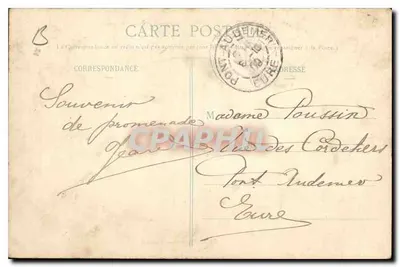 B
CARTE POSTALE
CORRESPONDANCE
ADRESSE
PONT-AUDEMER
EURE
Souvenir
de promenade
Jean
Madame Poussin
Rue des Cordeliers
Pont Audemer
Eure
CPAPHIL